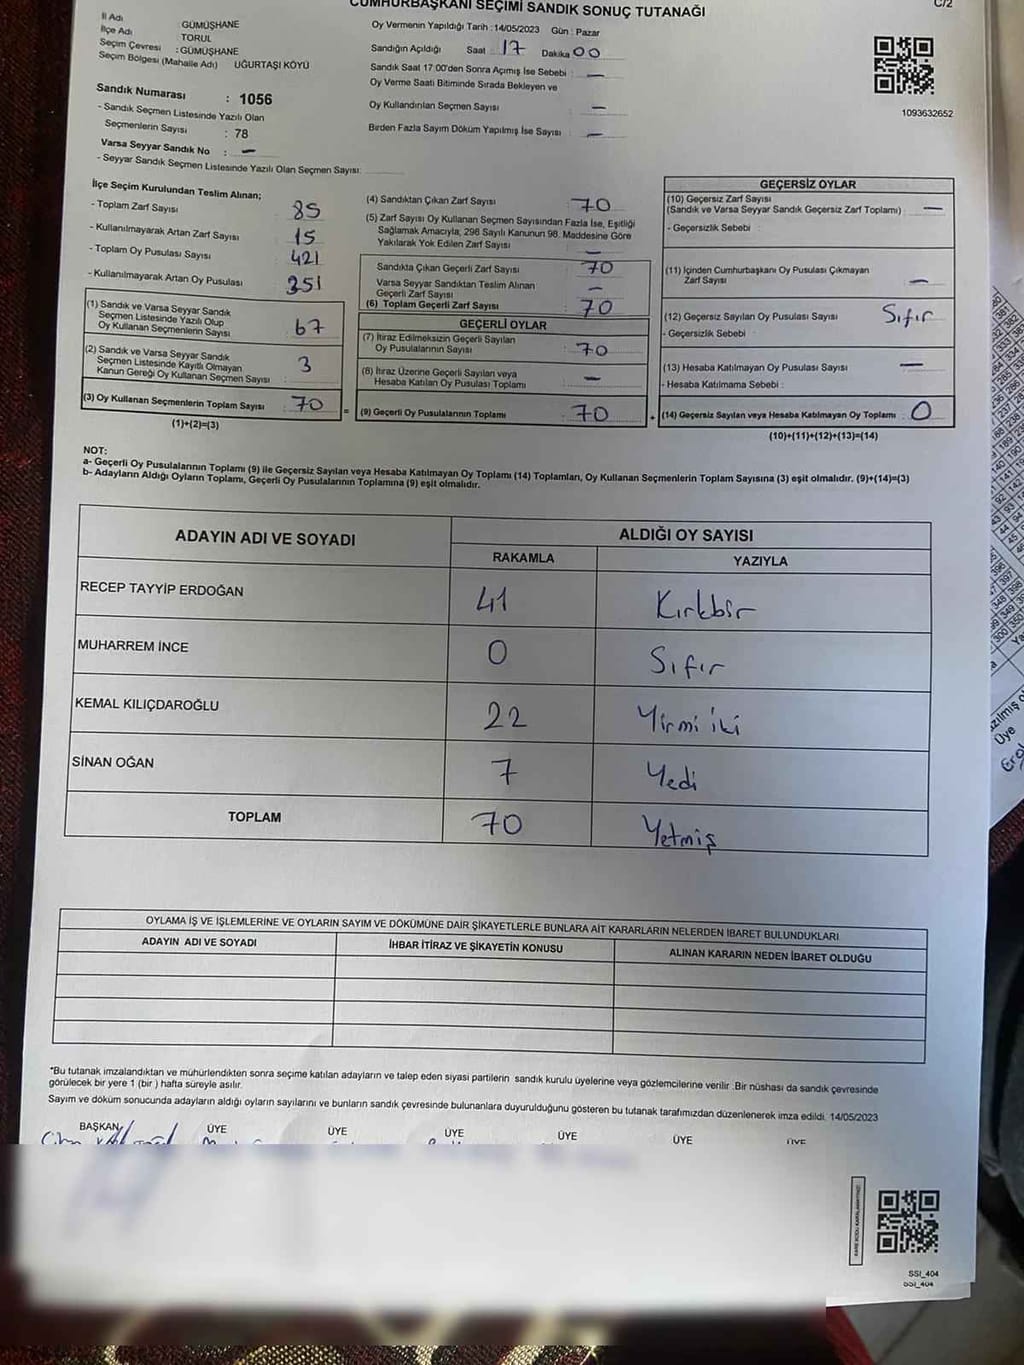 CUMHURBAŞKANI SEÇİMİ SANDIK SONUÇ TUTANAĞI
C/2
İl Adı : GÜMÜŞHANE
İlçe Adı : TORUL
Seçim Çevresi : GÜMÜŞHANE
Seçim Bölgesi (Mahalle Adı) UĞURTAŞI KÖYÜ
Sandık Numarası : 1056
- Sandık Seçmen Listesinde Yazılı Olan
Seçmenlerin Sayısı : 78
Varsa Seyyar Sandık No : —
- Seyyar Sandık Seçmen Listesinde Yazılı Olan Seçmen Sayısı:
Oy Vermenin Yapıldığı Tarih : 14/05/2023 Gün : Pazar
Sandığın Açıldığı Saat 17 Dakika 00
Sandık Saat 17:00'den Sonra Açımış İse Sebebi : —
Oy Verme Saati Bitiminde Sırada Bekleyen ve
Oy Kullandırılan Seçmen Sayısı —
Birden Fazla Sayım Döküm Yapılmış İse Sayısı : —
1093632652
İlçe Seçim Kurulundan Teslim Alınan;
- Toplam Zarf Sayısı 85
- Kullanılmayarak Artan Zarf Sayısı 15
- Toplam Oy Pusulası Sayısı 421
- Kullanılmayarak Artan Oy Pusulası 351
(1) Sandık ve Varsa Seyyar Sandık
Seçmen Listesinde Yazılı Olup
Oy Kullanan Seçmenlerin Sayısı 67
(2) Sandık ve Varsa Seyyar Sandık
Seçmen Listesinde Kayıtlı Olmayan
Kanun Gereği Oy Kullanan Seçmen Sayısı : 3
(3) Oy Kullanan Seçmenlerin Toplam Sayısı : 70
(1)+(2)=(3)
=
(4) Sandıktan Çıkan Zarf Sayısı 70
(5) Zarf Sayısı Oy Kullanan Seçmen Sayısından Fazla İse, Eşitliği
Sağlamak Amacıyla, 298 Sayılı Kanunun 98. Maddesine Göre
Yakılarak Yok Edilen Zarf Sayısı : —
Sandıkta Çıkan Geçerli Zarf Sayısı 70
Varsa Seyyar Sandıktan Teslim Alınan
Geçerli Zarf Sayısı —
(6) Toplam Geçerli Zarf Sayısı 70
GEÇERLİ OYLAR
(7) İtiraz Edilmeksizin Geçerli Sayılan
Oy Pusulalarının Sayısı 70
(8) İtiraz Üzerine Geçerli Sayılan veya
Hesaba Katılan Oy Pusulası Toplamı —
(9) Geçerli Oy Pusulalarının Toplamı 70
+
GEÇERSİZ OYLAR
(10) Geçersiz Zarf Sayısı
(Sandık ve Varsa Seyyar Sandık Geçersiz Zarf Toplamı) : —
- Geçersizlik Sebebi :
(11) İçinden Cumhurbaşkanı Oy Pusulası Çıkmayan
Zarf Sayısı : —
(12) Geçersiz Sayılan Oy Pusulası Sayısı : Sıfır
- Geçersizlik Sebebi :
(13) Hesaba Katılmayan Oy Pusulası Sayısı : —
- Hesaba Katılmama Sebebi :
(14) Geçersiz Sayılan veya Hesaba Katılmayan Oy Toplamı : 0
(10)+(11)+(12)+(13)=(14)
NOT:
a- Geçerli Oy Pusulalarının Toplamı (9) ile Geçersiz Sayılan veya Hesaba Katılmayan Oy Toplamı (14) Toplamları, Oy Kullanan Seçmenlerin Toplam Sayısına (3) eşit olmalıdır. (9)+(14)=(3)
b- Adayların Aldığı Oyların Toplamı, Geçerli Oy Pusulalarının Toplamına (9) eşit olmalıdır.
ADAYIN ADI VE SOYADI ALDIĞI OY SAYISI
RAKAMLA YAZIYLA
RECEP TAYYİP ERDOĞAN 41 Kırkbir
MUHARREM İNCE 0 Sıfır
KEMAL KILIÇDAROĞLU 22 Yirmi iki
SİNAN OĞAN 7 Yedi
TOPLAM 70 Yetmiş
OYLAMA İŞ VE İŞLEMLERİNE VE OYLARIN SAYIM VE DÖKÜMÜNE DAİR ŞİKAYETLERLE BUNLARA AİT KARARLARIN NELERDEN İBARET BULUNDUKLARI
ADAYIN ADI VE SOYADI İHBAR İTİRAZ VE ŞİKAYETİN KONUSU ALINAN KARARIN NEDEN İBARET OLDUĞU
"Bu tutanak imzalandıktan ve mühürlendikten sonra seçime katılan adayların ve talep eden siyasi partilerin sandık kurulu üyelerine veya gözlemcilerine verilir .Bir nüshası da sandık çevresinde
görülecek bir yere 1 (bir ) hafta süreyle asılır.
Sayım ve döküm sonucunda adayların aldığı oyların sayılarını ve bunların sandık çevresinde bulunanlara duyurulduğunu gösteren bu tutanak tarafımızdan düzenlenerek imza edildi. 14/05/2023
BAŞKAN ÜYE ÜYE ÜYE ÜYE ÜYE ÜYE
SSI_404
SSI_404